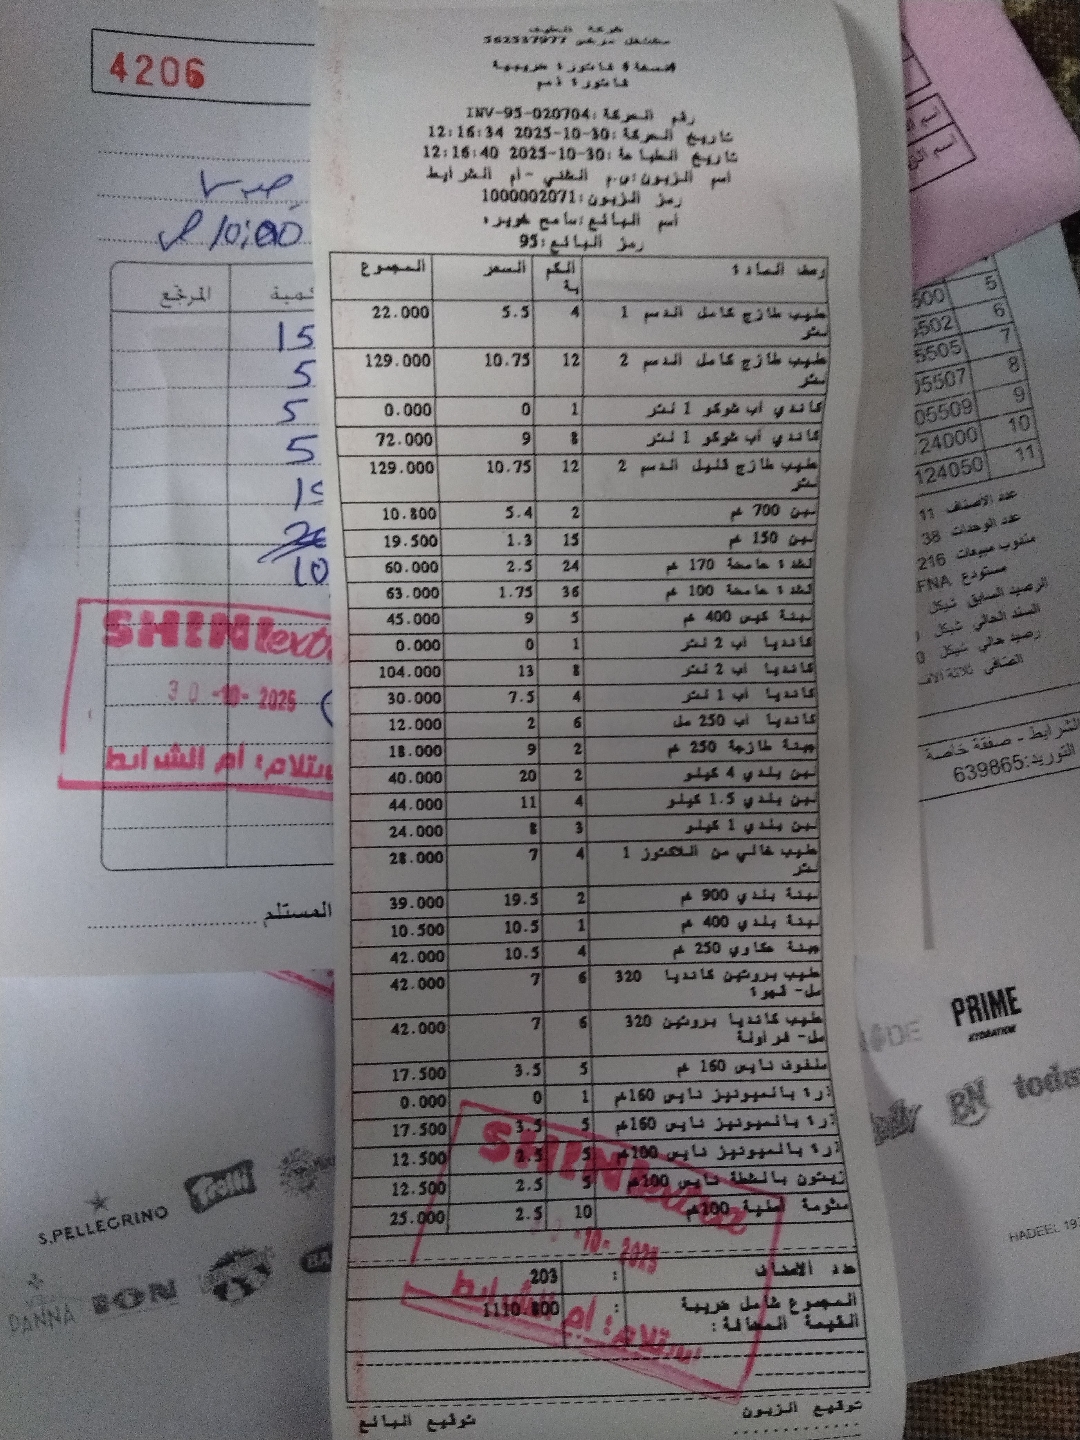 شركة الطيف
مشتغل مرخص 562537977
نسخة فاتورة ضريبية
فاتورة ذمم
رقم الحركة :INV-95-020704
تاريخ الحركة :30-10-2025 12:16:34
تاريخ الطباعة :30-10-2025 12:16:40
رمز الزبون :1000002071
رمز البائع :95
وصف المادة الكمية السعر المجموع
حليب طازج كامل الدسم 1 لتر 4 5.5 22.000
حليب طازج كامل الدسم 2 لتر 12 10.75 129.000
كاندي أب شوكو 1 لتر 1 0 0.000
كاندي أب شوكو 1 لتر 8 9 72.000
حليب طازج قليل الدسم 2 لتر 12 10.75 129.000
لبن 700 غم 2 5.4 10.800
لبن 150 غم 15 1.3 19.500
قشدة حامضة 170 غم 24 2.5 60.000
قشدة حامضة 100 غم 36 1.75 63.000
لبنة كيس 400 غم 5 9 45.000
كانديا أب 2 لتر 1 0 0.000
كانديا أب 2 لتر 8 13 104.000
كانديا أب 1 لتر 4 7.5 30.000
كانديا أب 250 مل 6 2 12.000
جبنة طازجة 250 غم 2 9 18.000
لبن بلدي 4 كيلو 2 20 40.000
لبن بلدي 1.5 كيلو 4 11 44.000
لبن بلدي 1 كيلو 3 8 24.000
حليب خالي من اللاكتوز 1 لتر 4 7 28.000
لبنة بلدي 900 غم 2 19.5 39.000
لبنة بلدي 400 غم 1 10.5 10.500
جبنة عكاوي 250 غم 4 10.5 42.000
حليب بروتين كانديا 320 مل- قهوة 6 7 42.000
حليب كانديا بروتين 320 مل- فراولة 6 7 42.000
ملفوف نايس 160 غم 5 3.5 17.500
ذرة بالميونيز نايس 160غم 1 0 0.000
ذرة بالميونيز نايس 160غم 5 3.5 17.500
ذرة بالميونيز نايس 100غم 5 2.5 12.500
زيتون بالشطة نايس 100غم 5 2.5 12.500
10 2.5 25.000
عدد الاصناف : 203
المجموع شامل ضريبة القيمة المضافة : 1110.800
توقيع الزبون توقيع البائع
SHINI extra
استلام: أم الشرايط
4206
10:00
كمية المرتجع
15
5
5
5
10
SHINI extra
30-10-2025
استلام: أم الشرايط
المستلم
5
6
7
8
9
10
11
5505
5507
05509
24000
124050
عدد الأصناف 11
عدد الوحدات 38
مندوب مبيعات 216
مستودع FNA
الرصيد السابق شيكل
السند الحالي شيكل
رصيد حالي شيكل
الشرايط - صفقة خاصة
التوريد:639865
PRIME
HYDRATION
BN
S.PELLEGRINO
Trolli
DANNA
HADEEL